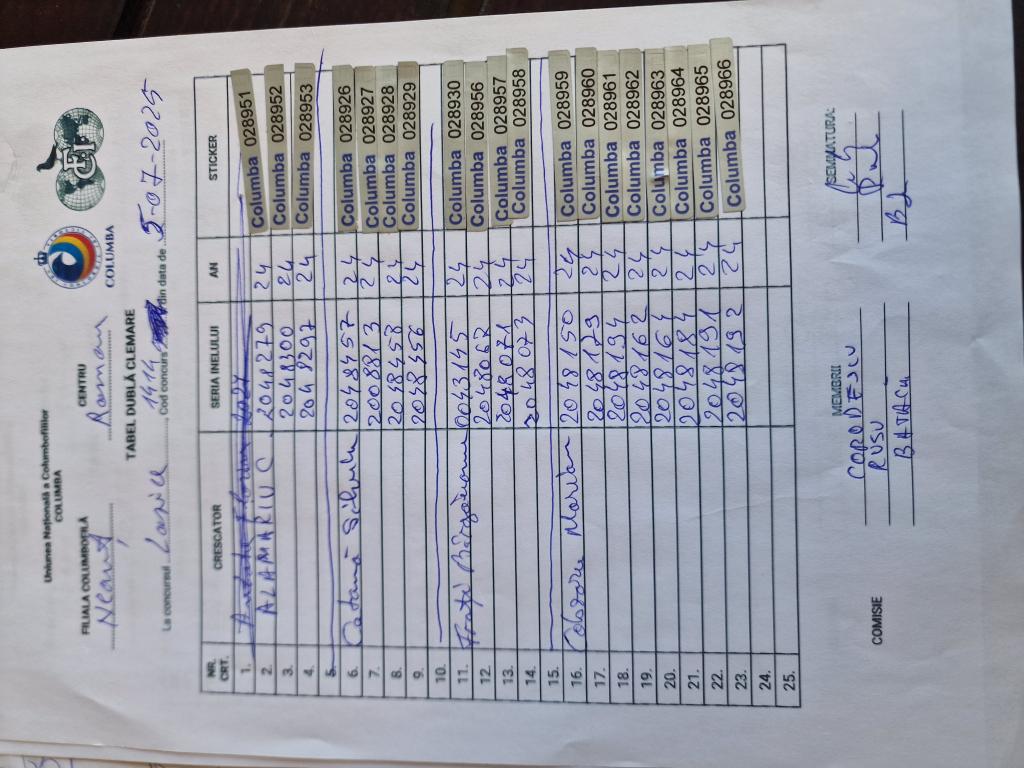 Uniunea Națională a Columbofililor
COLUMBA
COLUMBA
FCI
FILIALA COLUMBOFILĂ CENTRU
Neamț Roman
TABEL DUBLĂ CLEMARE
La concursul Cod concurs 1414 din data de 5-07-2025
NR. CRT. CRESCATOR SERIA INELULUI AN STICKER
1.
2. ALAMARIUC 2048279 24 Columba 028951
3. 2048300 24 Columba 028952
4. 2048297 24 Columba 028953
5.
6. Catană Silviu 2048457 24 Columba 028926
7. 2008813 24 Columba 028927
8. 2048458 24 Columba 028928
9. 2048456 24 Columba 028929
10.
11. Frați Bârgăoanu 0043145 24 Columba 028930
12. 2048067 24 Columba 028956
13. 2048071 24 Columba 028957
14. 2048073 24 Columba 028958
15.
16. Marian 2048150 24 Columba 028959
17. 2048179 24 Columba 028960
18. 2048194 24 Columba 028961
19. 2048162 24 Columba 028962
20. 2048164 24 Columba 028963
21. 2048184 24 Columba 028964
22. 2048191 24 Columba 028965
23. 2048192 24 Columba 028966
24.
25.
COMISIE MEMBRII SEMNATURA:
RUSU
BATACU